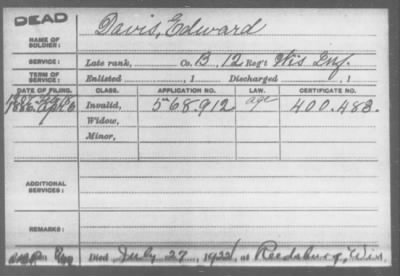 DEAD
Davis, Edward
NAME OF SOLDIER:
SERVICE: Late rank, Co. B, 12 Reg't Wis Inf.
TERM OF SERVICE: Enlisted , 1 Discharged , 1
DATE OF FILING. CLASS. APPLICATION NO. LAW. CERTIFICATE NO.
1886 Apr 6 Invalid, 568.912 age 400.483.
Widow,
Minor,
ADDITIONAL SERVICES:
REMARKS:
Died July 27, 1922, at Reedsburg, Wis.